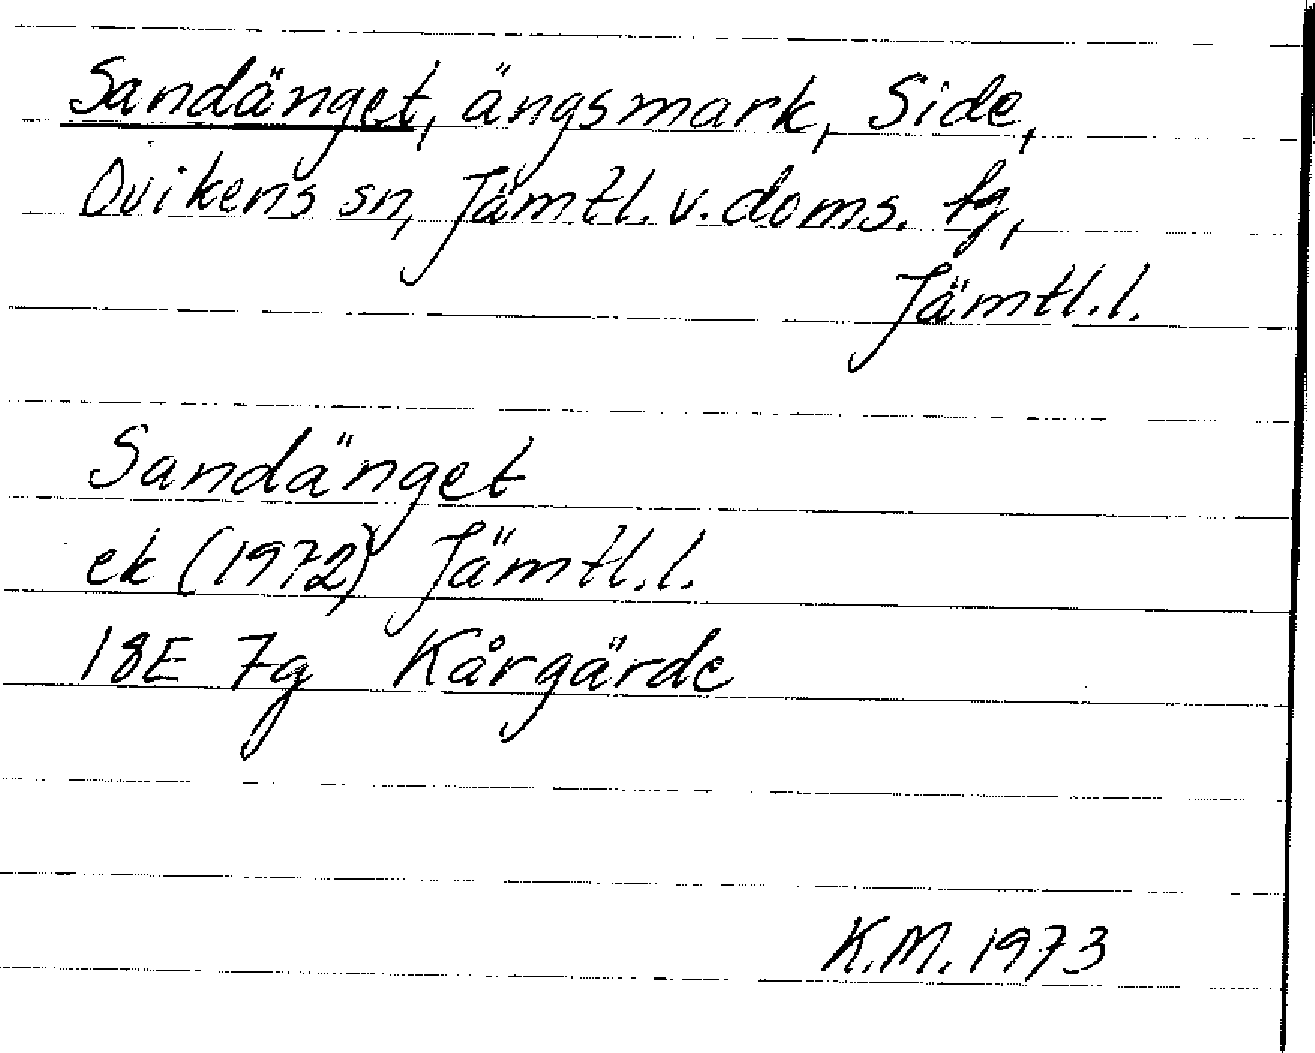 Sandänget, ängsmark, Side,
Ovikens sn, Jämtl. v. doms. tg,
Jämtl. l.
Sandänget
ek (1972) Jämtl. l.
18E 7g Kårgärde
K.M. 1973